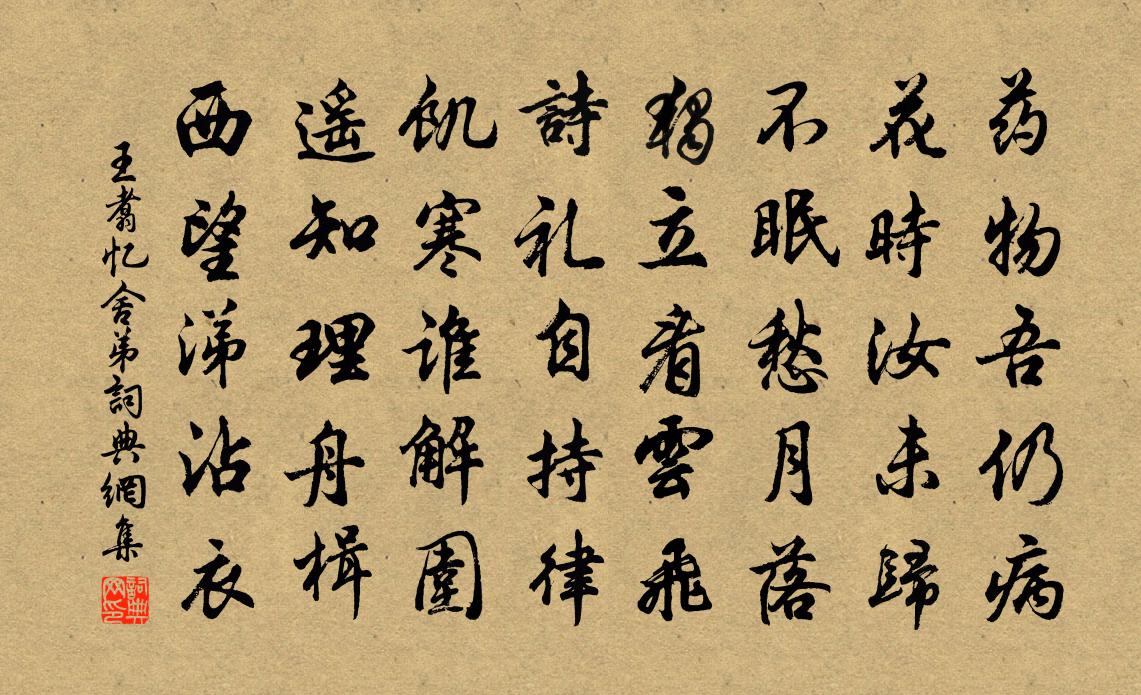 药物吾仍病
花時汝未歸
不眠愁月落
獨立看雲飛
詩礼自持律
飢寒谁解圍
遥知理舟楫
西望涕沾衣
王翥忆舍弟詞典網集
詞典网印